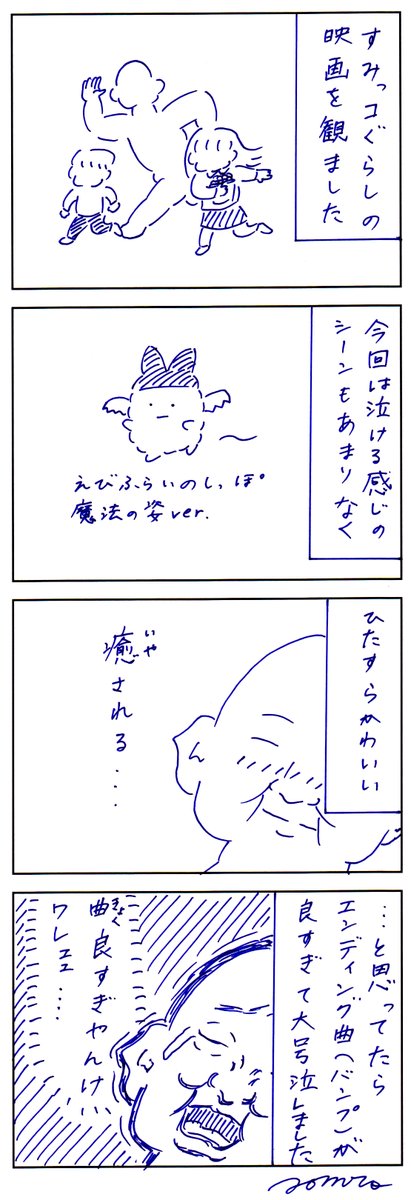 すみっコぐらしの
映画を観ました
今回は泣ける感じの
シーンもあまりなく
えびふらいのしっぽ
魔法の姿ver.
ひたすらかわいい
癒される...
いや
…と思ってたら
エンディング曲(バンプ)が
良すぎて大号泣しました
曲良すぎやんけ
きょく
ワレェェ....